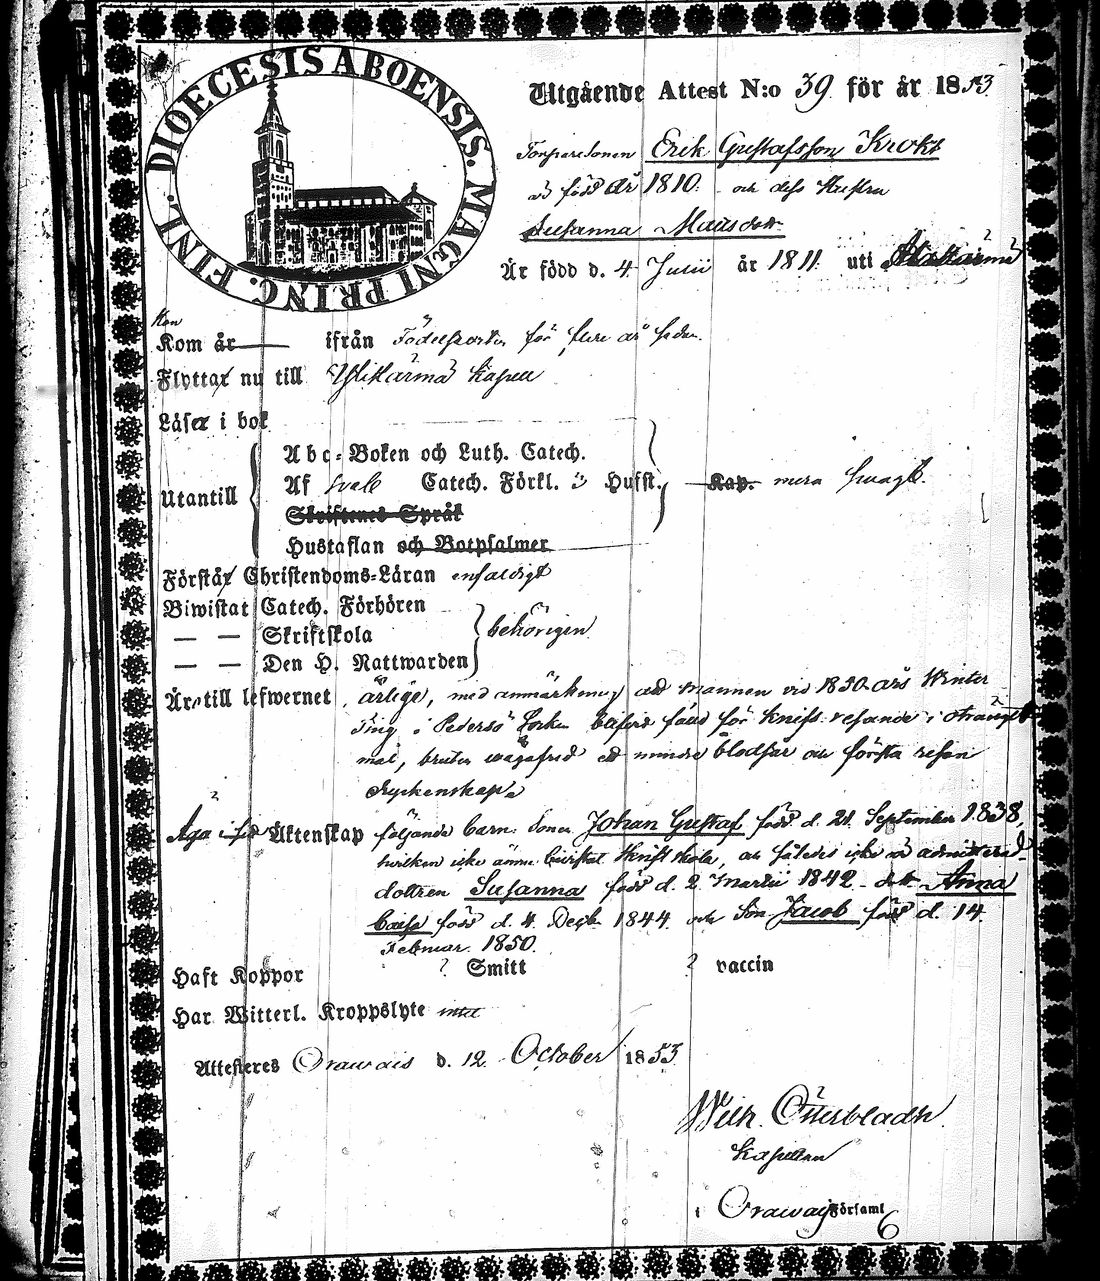 DIOECESIS ABOENSIS. MAGNI PRINC. FINL.
Utgående Attest N:o 39 för år 1853
Erik Gustafsson Krokt
född år 1810. och dess Hustru
Susanna Matsdotr
Är född d. 4 Julii år 1811. uti
Kom år ifrån Födelseorten för flere år sedan.
Flyttar nu till Ylikärmä Kapell
Läser i bok
Abc-Boken och Luth. Catech.
Utantill Af Catech. Förkl. Hufst. Kap. mera svagt.
Skriftenes Språk
Hustaflan och Botpsalmer
Förstår Christendoms-Läran enfaldigt
Biwistat Catech. Förhören
— — Skriftskola behörigen
— — Den H. Nattwarden
Är till lefwernet ärlige, med anmärkning att mannen vid 1850 års Winter
Ting i Pedersö Socken blifvit fälld för knifs
mål, brutit wägafred och mindre blodsår och första resan
dryckenskap.
Äga i Äktenskap följande barn: Sonen Johan Gustaf född d. 21 September 1838,
hvilken icke ännu bivistat Skriftskola, och således icke är admitterad.
dottren Susanna född d. 2 Martii 1842 dotr Anna
Caisa född d. 4 Decb. 1844 och Son Jacob född d. 14
Februar. 1850.
Haft Koppor ? Smitt ? vaccin
Har Witterl. Kroppslyte intet
Attesteres Orawais d. 12 October 1853
Wilh. Österbladh
Kapellan
i Orawais Församl